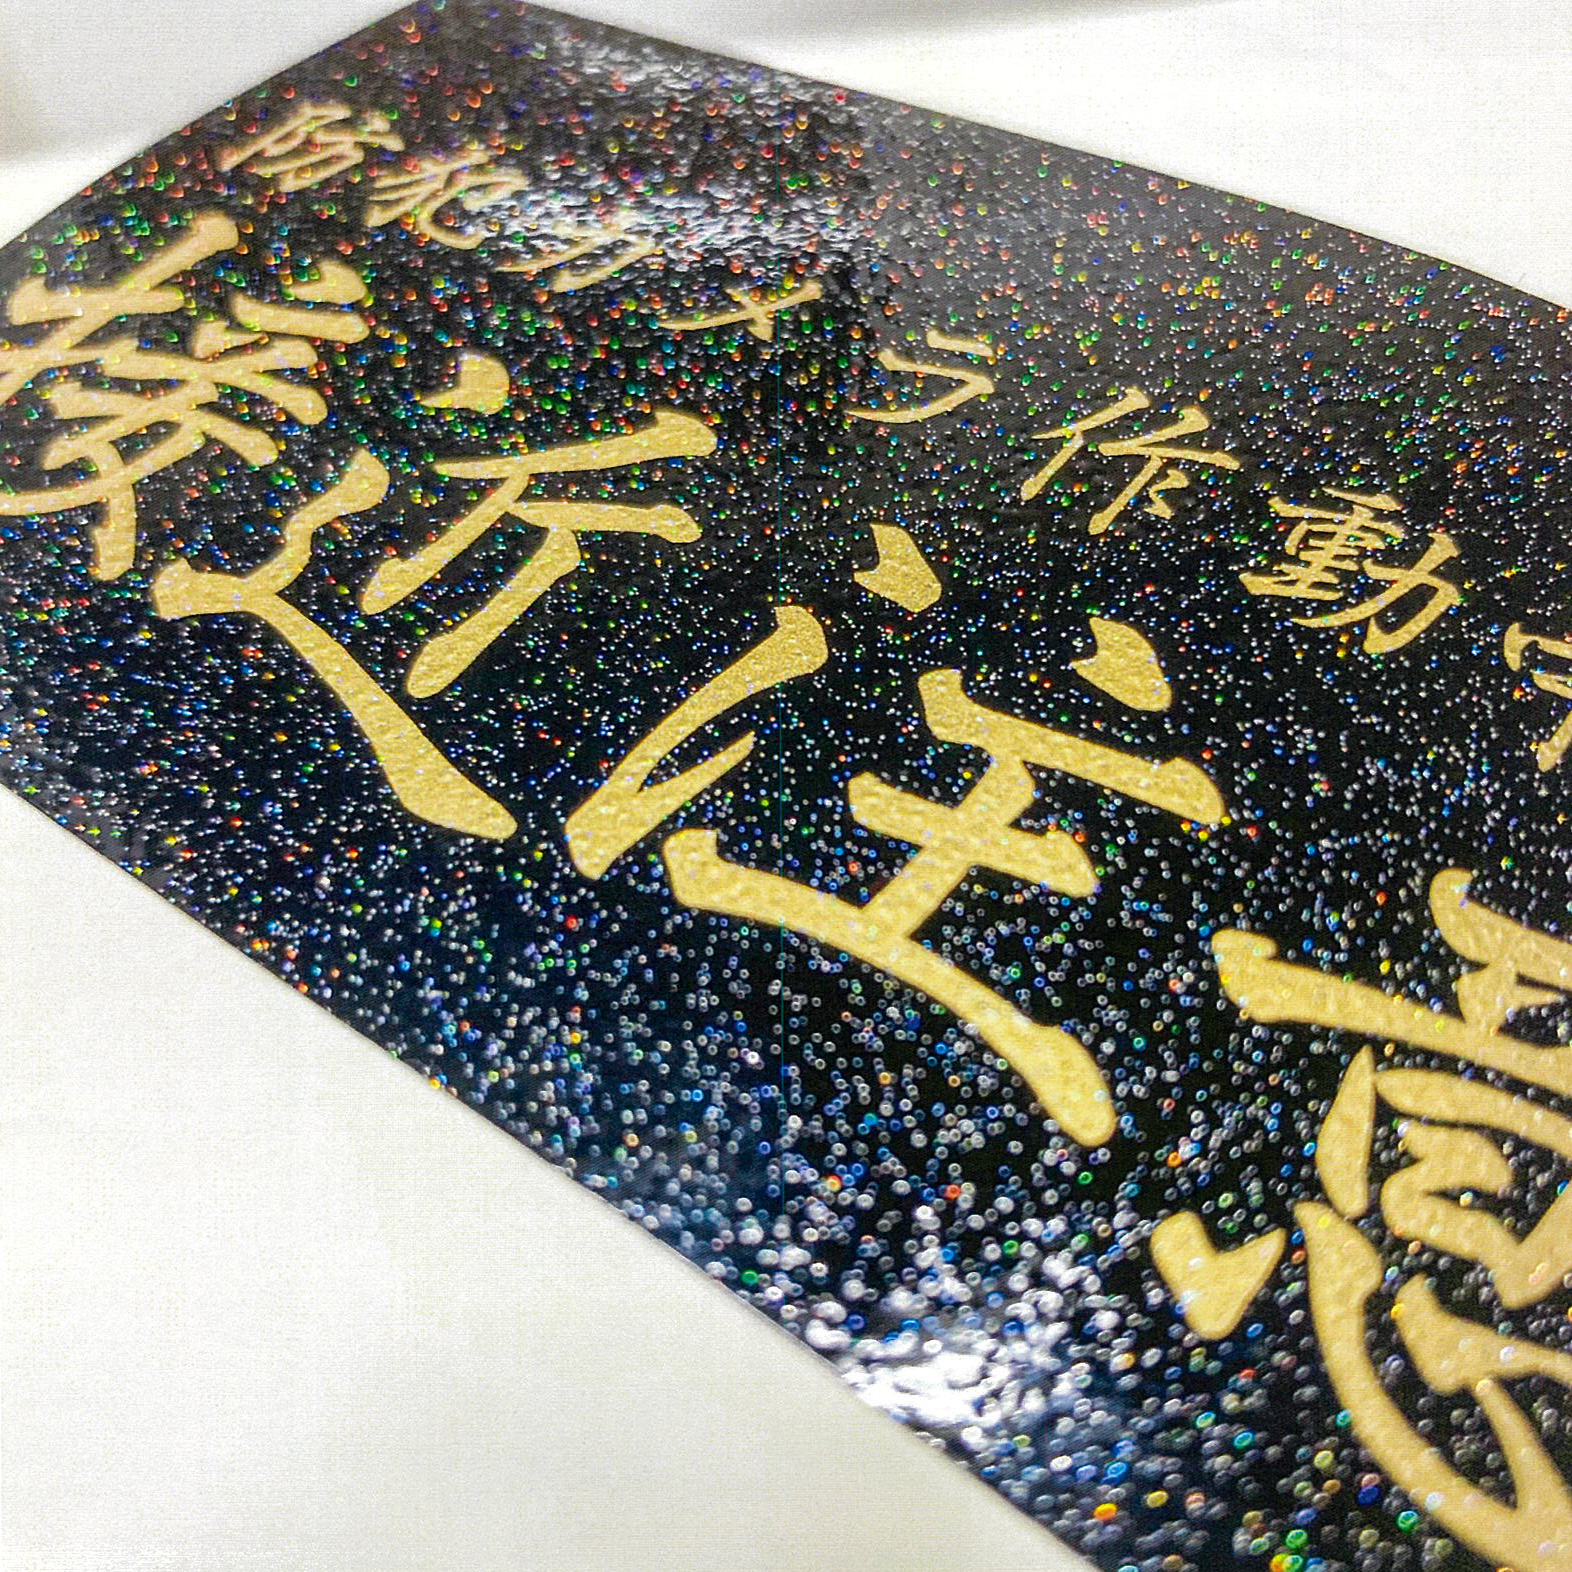 防犯カメラ作動中
接近注意